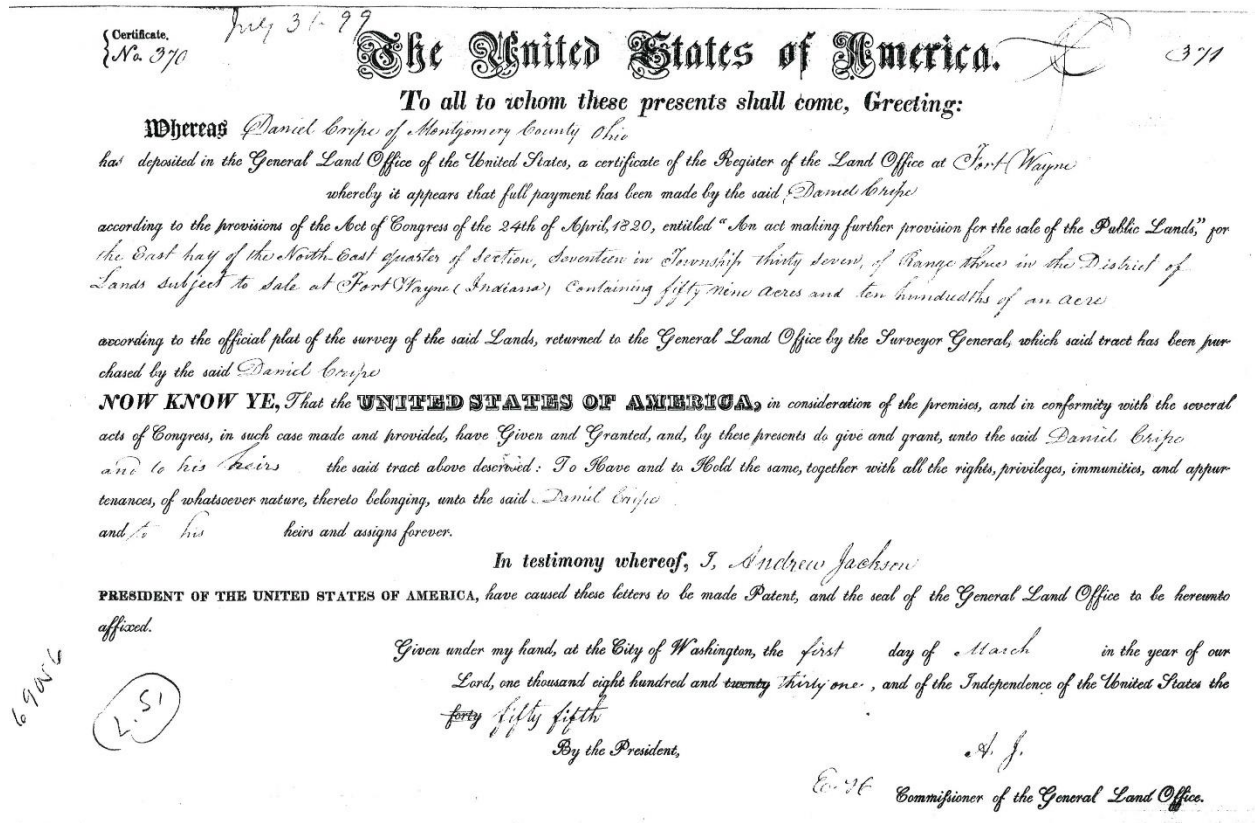 July 31 99
Certificate,
No. 370
The United States of America.
371
To all to whom these presents shall come, Greeting:
Whereas Daniel Cripe of Montgomery County Ohio
has deposited in the General Land Office of the United States, a certificate of the Register of the Land Office at Fort Wayne
whereby it appears that full payment has been made by the said Daniel Cripe
according to the provisions of the Act of Congress of the 24th of April, 1820, entitled "An act making further provision for the sale of the Public Lands," for
the East half of the North East quarter of section, Seventeen in Township thirty seven, of Range three in the District of
Lands subject to sale at Fort Wayne (Indiana) Containing fifty nine acres and ten hundredths of an acre
according to the official plat of the survey of the said Lands, returned to the General Land Office by the Surveyor General, which said tract has been pur-
chased by the said Daniel Cripe
NOW KNOW YE, That the UNITED STATES OF AMERICA, in consideration of the premises, and in conformity with the several
acts of Congress, in such case made and provided, have Given and Granted, and, by these presents do give and grant, unto the said Daniel Cripe
and to his heirs the said tract above described: To Have and to Hold the same, together with all the rights, privileges, immunities, and appur-
tenances, of whatsoever nature, thereto belonging, unto the said Daniel Cripe
and to his heirs and assigns forever.
In testimony whereof, I, Andrew Jackson
PRESIDENT OF THE UNITED STATES OF AMERICA, have caused these letters to be made Patent, and the seal of the General Land Office to be hereunto
affixed.
Given under my hand, at the City of Washington, the first day of March in the year of our
Lord, one thousand eight hundred and twenty thirty one, and of the Independence of the United States the
forty fifty fifth
L.S.
By the President,
A. J.
Commissioner of the General Land Office.